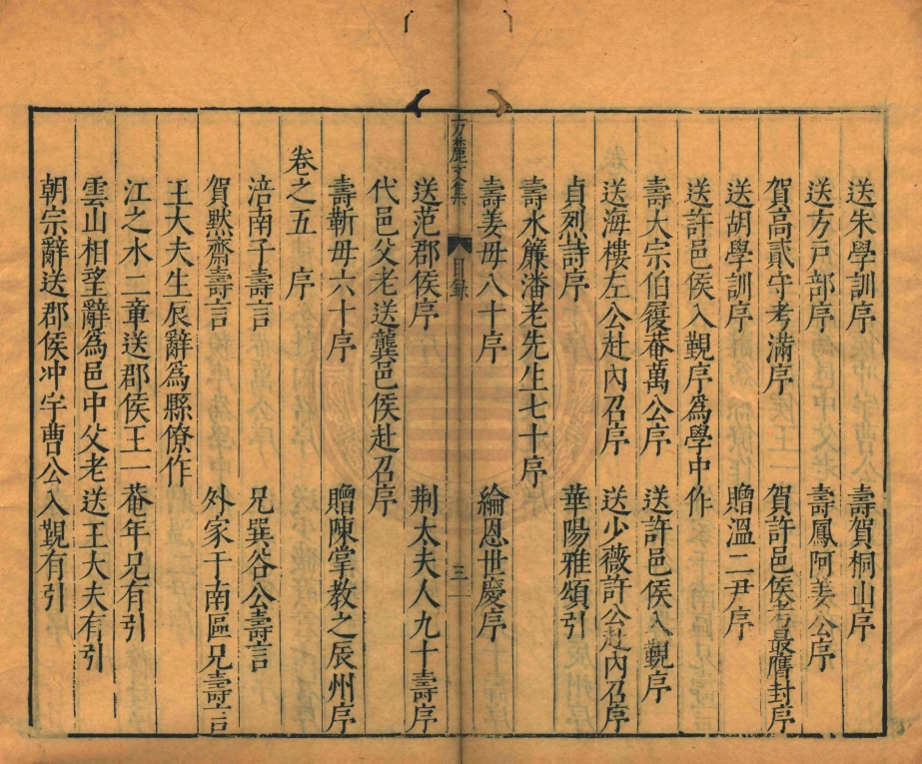 送朱學訓序　壽賀桐山序
送方戸部序　壽鳳阿姜公序
賀高貳守考滿序　賀許邑侯考最膺封序
送胡學訓序　贈溫二尹序
送許邑侯入覲序爲學中作
壽大宗伯履菴萬公序　送許邑侯入覲序
送海樓左公赴內召序　送少薇許公赴內召序
貞烈詩序　華陽雅頌引
壽水簾潘老先生七十序
壽姜母八十序　綸恩世慶序
方麓文集　目録　三
送范郡侯序　荆太夫人九十壽序
代邑父老送龔邑侯赴召序
壽靳母六十序　贈陳掌教之辰州序
卷之五　序
涪南子壽言　兄巽谷公壽言
賀默齋壽言　外家于南區兄壽言
王大夫生辰辭爲縣僚作
江之水二章送郡侯王一菴年兄有引
雲山相望辭爲邑中父老送王大夫有引
朝宗辭送郡侯冲宇曹公入覲有引